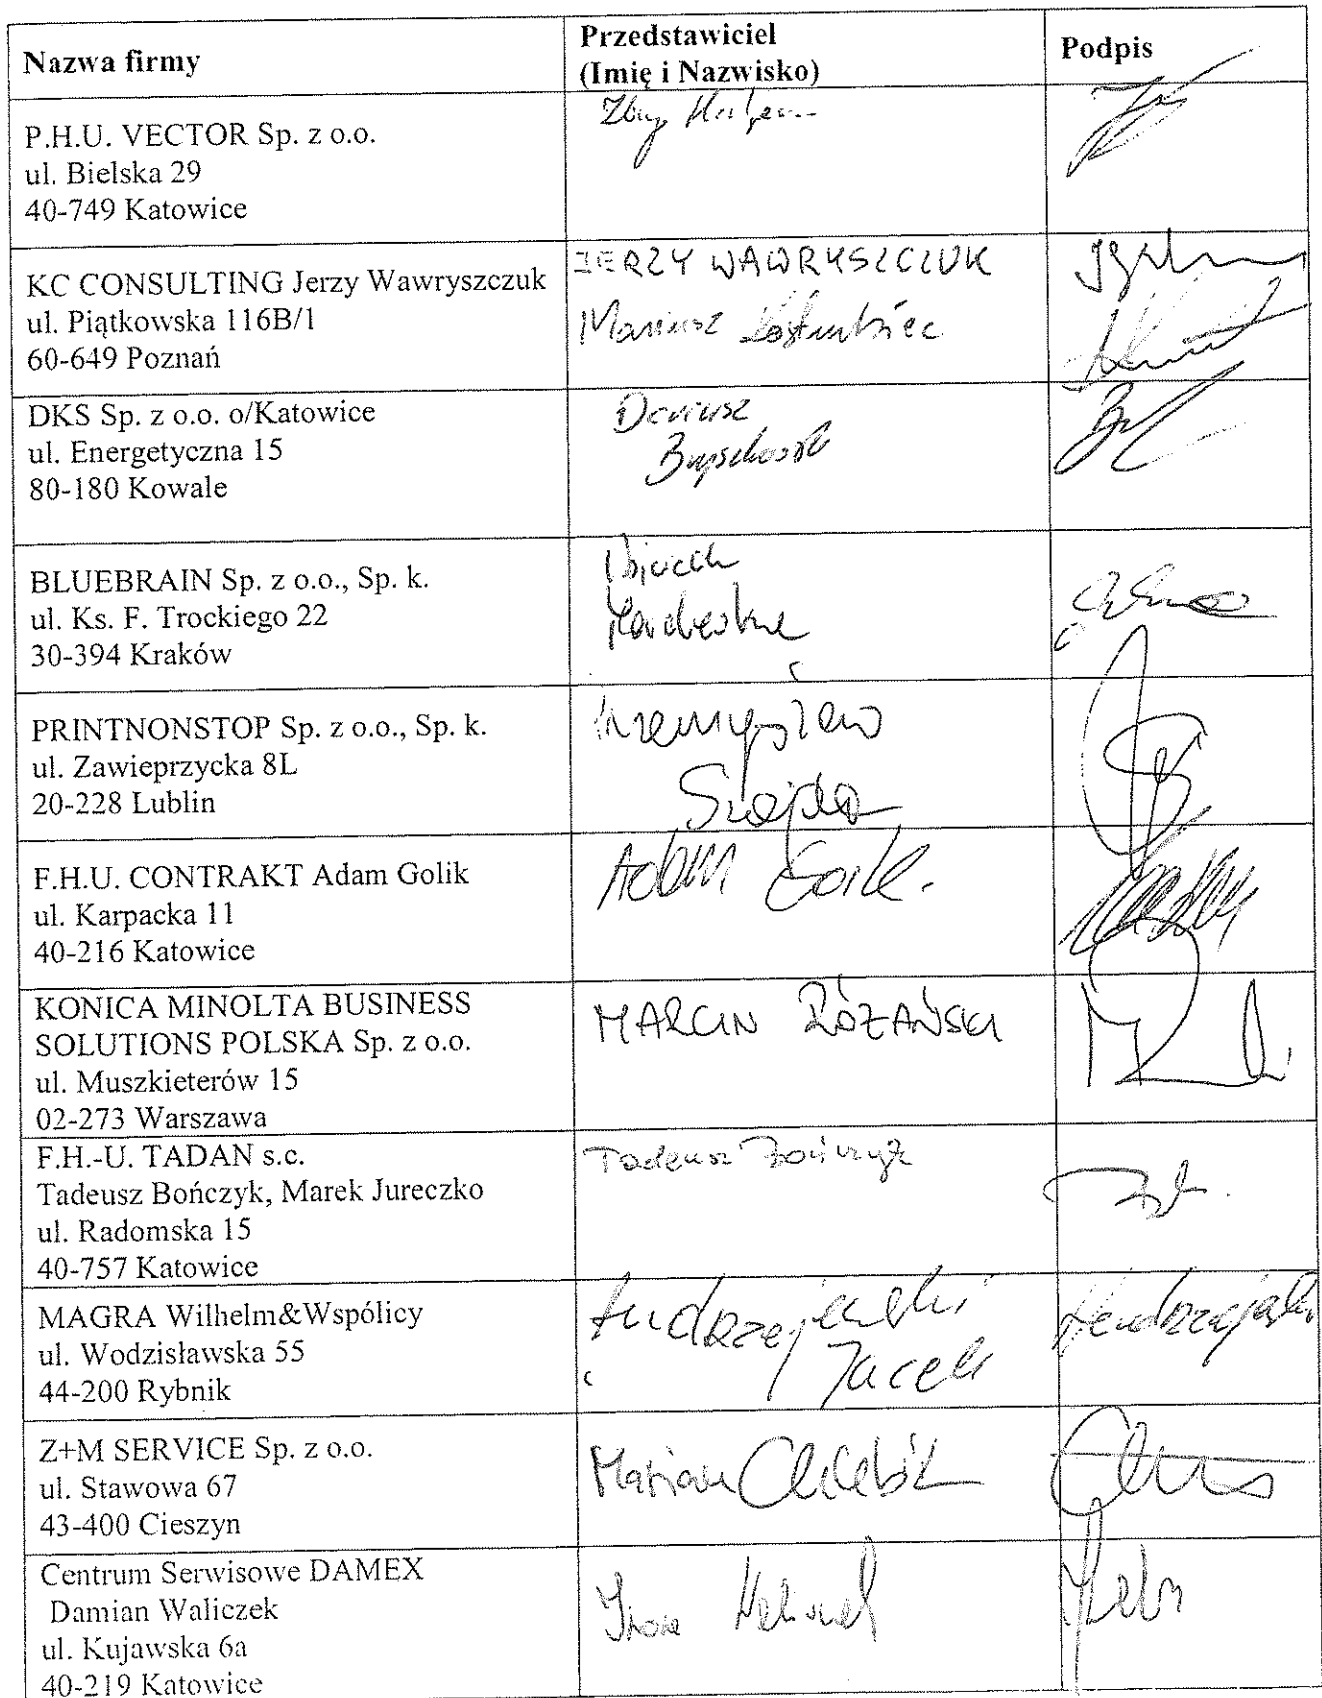 Nazwa firmy
Przedstawiciel
(Imię i Nazwisko)
Podpis
P.H.U. VECTOR Sp. z o.o.
ul. Bielska 29
40-749 Katowice
KC CONSULTING Jerzy Wawryszczuk
ul. Piątkowska 116B/1
60-649 Poznań
JERZY WAWRYSZCZUK
Mariusz
DKS Sp. z o.o. o/Katowice
ul. Energetyczna 15
80-180 Kowale
Dariusz
BLUEBRAIN Sp. z o.o., Sp. k.
ul. Ks. F. Trockiego 22
30-394 Kraków
PRINTNONSTOP Sp. z o.o., Sp. k.
ul. Zawieprzycka 8L
20-228 Lublin
Przemysław
F.H.U. CONTRAKT Adam Golik
ul. Karpacka 11
40-216 Katowice
Adam Golik.
KONICA MINOLTA BUSINESS
SOLUTIONS POLSKA Sp. z o.o.
ul. Muszkieterów 15
02-273 Warszawa
MARCIN RÓŻAŃSKI
F.H.-U. TADAN s.c.
Tadeusz Bończyk, Marek Jureczko
ul. Radomska 15
40-757 Katowice
Tadeusz Bończyk
MAGRA Wilhelm&Wspólicy
ul. Wodzisławska 55
44-200 Rybnik
Andrzejewski
Jacek
Z+M SERVICE Sp. z o.o.
ul. Stawowa 67
43-400 Cieszyn
Marian
Centrum Serwisowe DAMEX
Damian Waliczek
ul. Kujawska 6a
40-219 Katowice